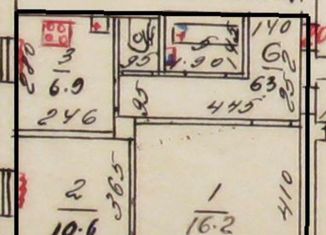 140
280
3
6.9
246
95
95
1.90
6
6.3
252
445
2
10.6
365
1
16.2
410